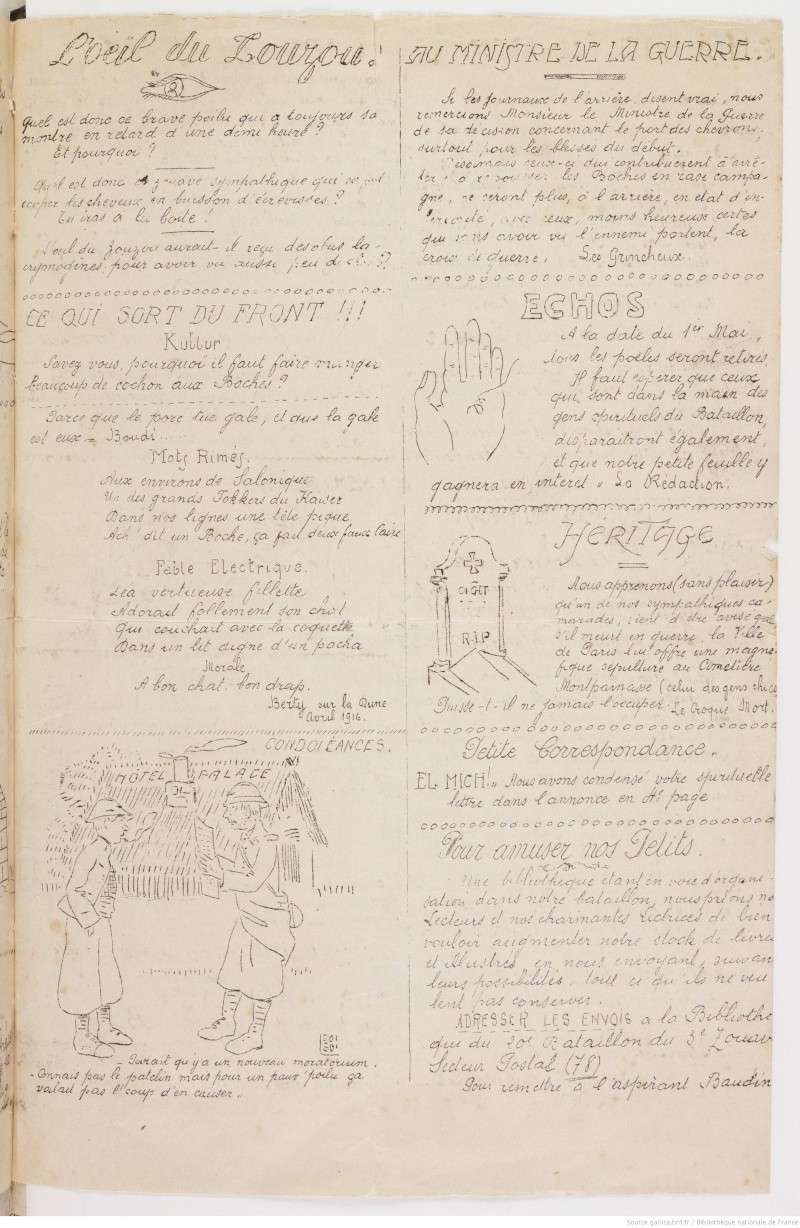 L'oeil du Zouzou!
Quel est donc ce brave poilu qui a toujours sa
montre en retard d'une demi heure?
Et pourquoi?
Quel est donc zouave sympathique qui se
couper les cheveux en buisson d'écrevisses?
Tu iras à la boîte!
L'oeil du Zouzou aurait-il reçu des obus la-
crymogènes pour avoir vu aussi peu de
CE QUI SORT DU FRONT !!!
Kultur
Savez vous, pourquoi il faut faire manger
beaucoup de cochon aux Boches?
Parce que le porc tue gale, et que la gale
est eux = Boudi.....
Mots Rimés.
Aux environs de Salonique
Un des grands Fokkers du Kaiser
Dans nos lignes une tête pique
Ach! dit un Boche, ça fait deux faux l'aire
Fable Electrique.
Léa vertueuse fillette
Adorait follement son chat
Qui couchait avec la coquette
Dans un lit digne d'un pacha
Morale
A bon chat bon drap.
Berty sur la Dune
Avril 1916.
CONDOLEANCES.
HÔTEL PALACE
- Parait qu'y a un nouveau moratorium.
- Connais pas le patelin mais pour un pauv' poilu ça
valait pas l'coup d'en causer..
AU MINISTRE DE LA GUERRE.
Si les journaux de l'arrière, disent vrai, nous
remercions Monsieur le Ministre de la Guerre
de sa décision concernant le port des chevrons,
surtout pour les blessés du début.
Désormais ceux-ci qui contribuèrent à arrê-
ter et à repousser les Boches en rase campa-
gne, ne seront plus, à l'arrière, en état d'in-
fériorité, avec ceux, moins heureux certes
qui sans avoir vu l'ennemi portent, la
croix de guerre. Léo Grincheux.
ECHOS
A la date du 1er Mai,
tous les poêles seront retirés.
Il faut espérer que ceux
qui sont dans la main des
gens spirituels du Bataillon,
disparaitront également,
et que notre petite feuille y
gagnera en interet " La Rédaction.
HÉRITAGE.
CI GIT
R.I.P
Nous apprenons (sans plaisir)
qu'un de nos sympathiques ca-
marades, vient d'être avisé que
s'il meurt en guerre, la Ville
de Paris lui offre une magni-
fique sépulture au Cimetière
Montparnasse (celui des gens chics
Puisse-t-il ne jamais l'occuper. Le Croque Mort.
Petite Correspondance.
EL MICH." Nous avons condensé votre spirituelle
lettre dans l'annonce en 4e page
Pour amuser nos Petits.
Une bibliothèque étant en voie d'organi-
sation dans notre bataillon, nous prions no
Lecteurs et nos charmantes Lectrices de bien
vouloir augmenter notre stock de livres
et illustrés en nous envoyant, suivan
leurs possibilités, tout ce qu'ils ne veu
lent pas conserver.
ADRESSER LES ENVOIS à la Bibliothè
que du 20e Bataillon du 3e Zouav
Secteur Postal (78)
Pour remettre à l'aspirant Baudin
Source gallica.bnf.fr / Bibliothèque nationale de France